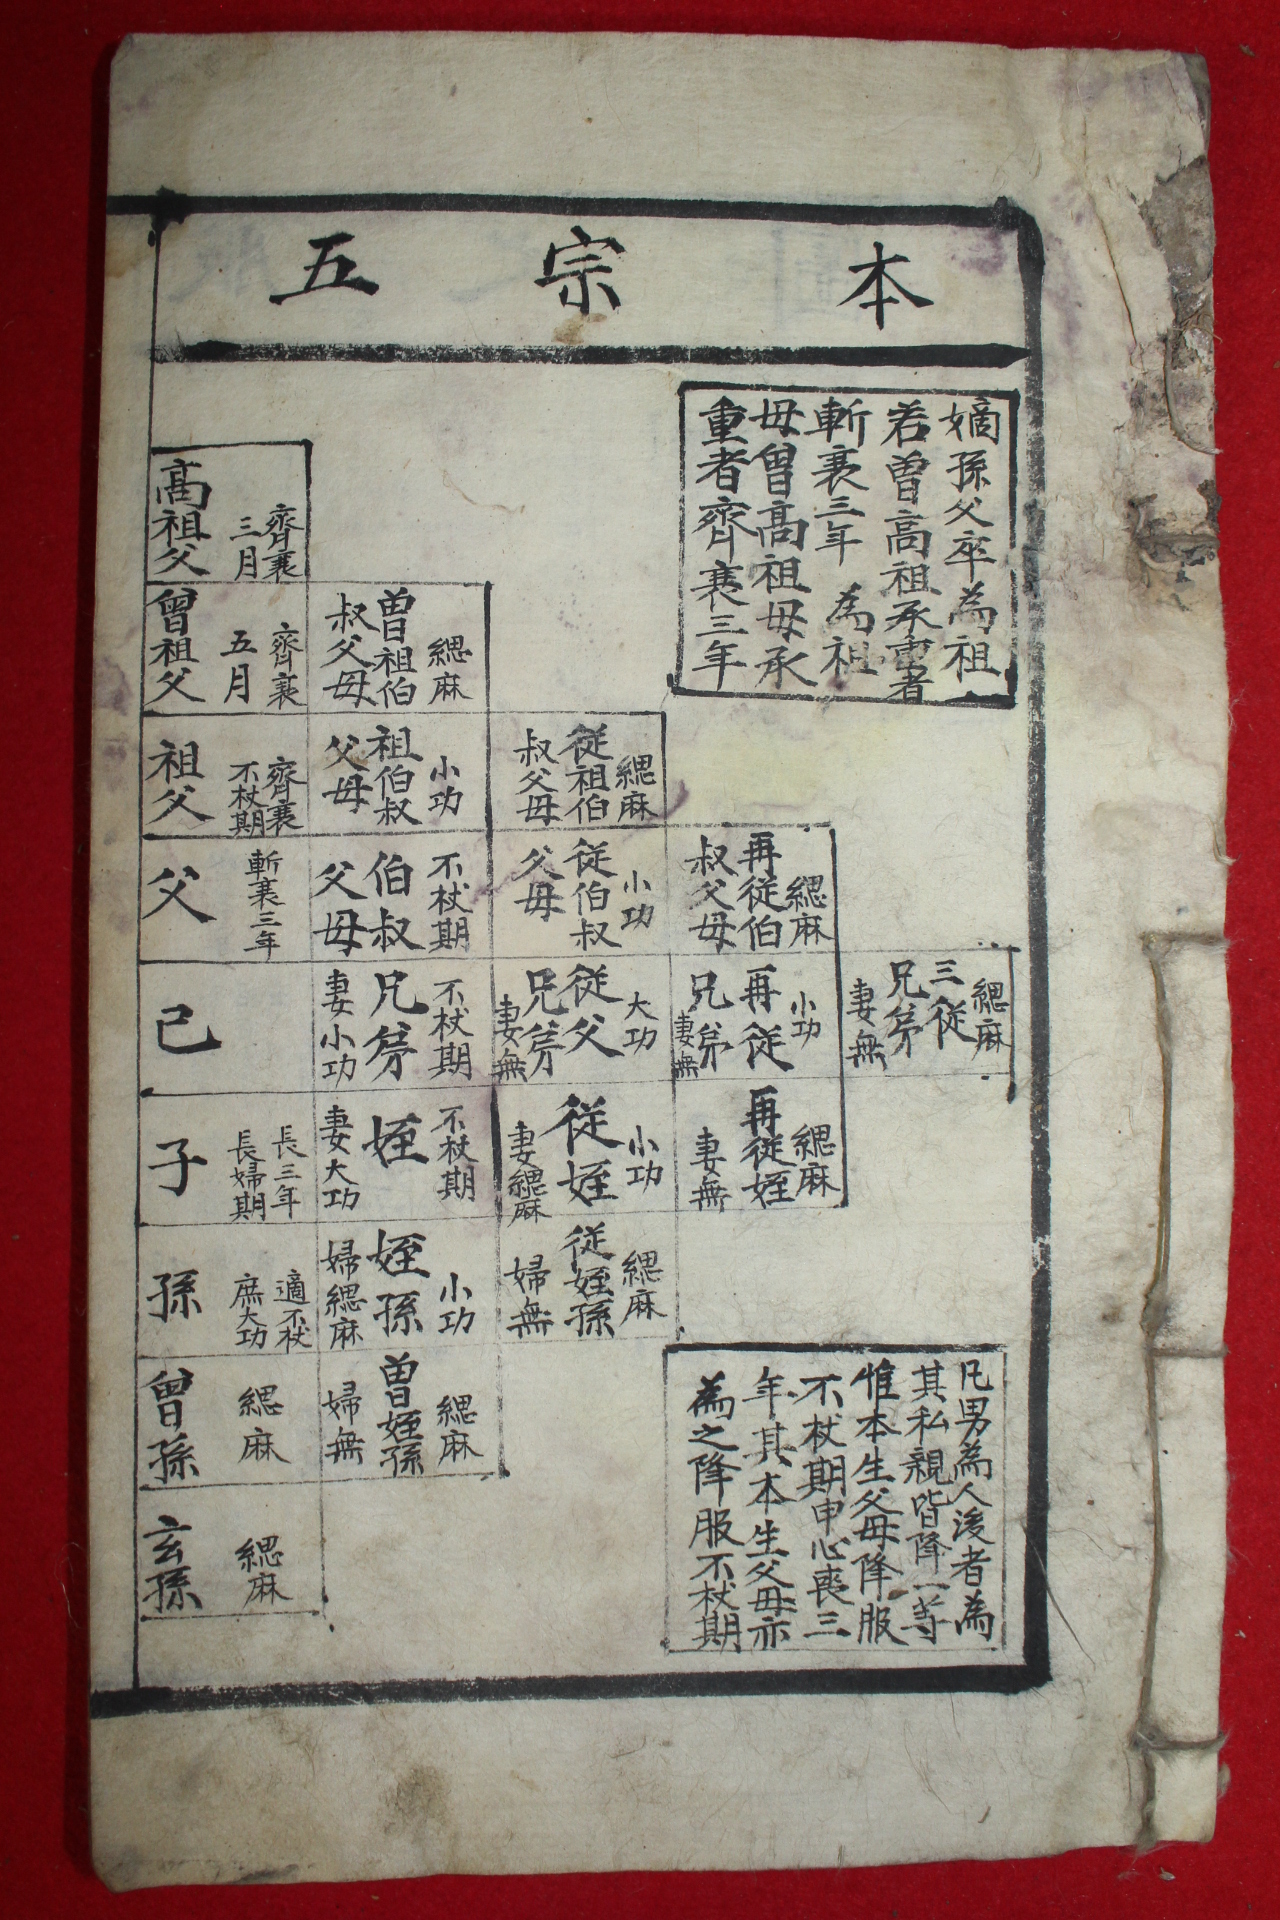 本宗五
嫡孫父卒為祖
若曽高祖承重者
斬衰三年 為祖
母曽高祖母承
重者齊衰三年
緦麻
三從
兄弟
妻無
緦麻
再從伯
叔父母
小功
再從
兄弟
妻無
緦麻
再從姪
妻無
緦麻
從祖伯
叔父母
小功
從伯叔
父母
大功
從父
兄弟
妻無
小功
從姪
妻緦麻
緦麻
從姪孫
婦無
緦麻
曽祖伯
叔父母
小功
祖伯叔
父母
不杖期
伯叔
父母
不杖期
兄弟
妻小功
不杖期
姪
妻大功
小功
姪孫
婦緦麻
緦麻
曽姪孫
婦無
齊衰
三月
高祖父
齊衰
五月
曾祖父
齊衰
不杖期
祖父
斬衰三年
父
己
長三年
長婦期
子
適不杖
庶大功
孫
緦麻
曾孫
緦麻
玄孫
凡男為人後者為
其私親皆降一等
惟本生父母降服
不杖期申心喪三
年其本生父母亦
為之降服不杖期